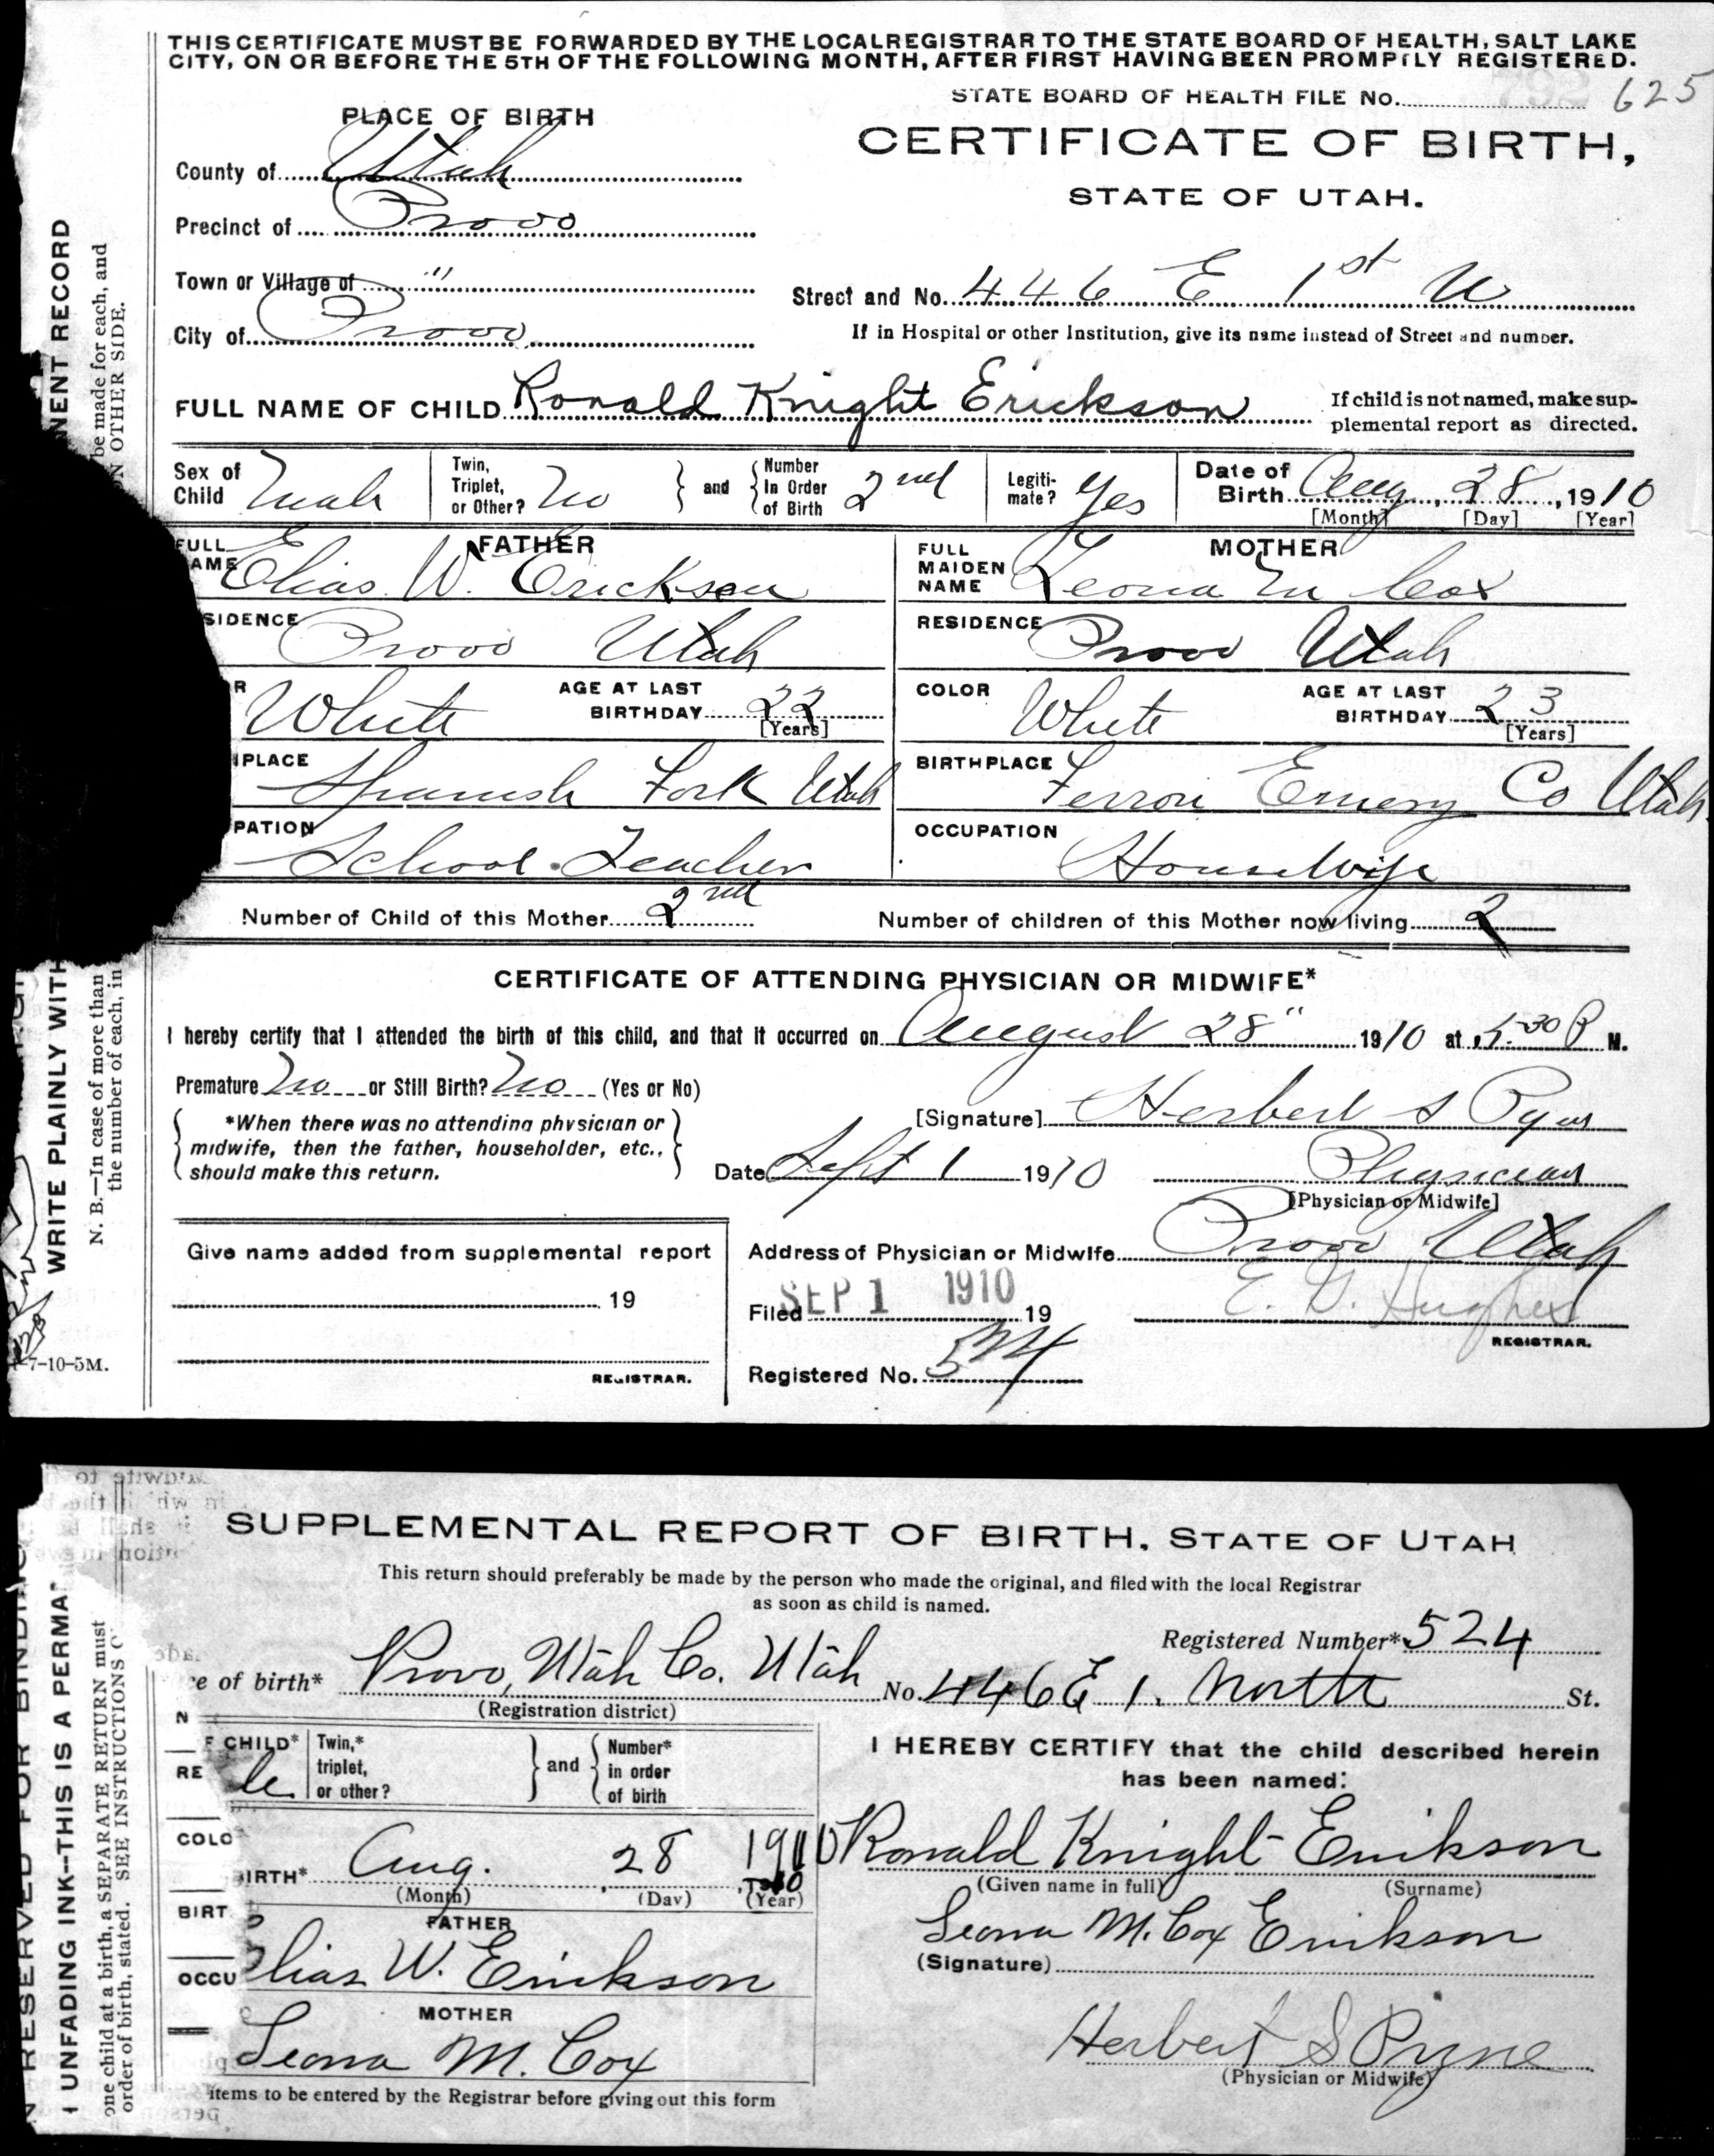 THIS CERTIFICATE MUST BE FORWARDED BY THE LOCAL REGISTRAR TO THE STATE BOARD OF HEALTH, SALT LAKE
CITY, ON OR BEFORE THE 5TH OF THE FOLLOWING MONTH, AFTER FIRST HAVING BEEN PROMPTLY REGISTERED.
STATE BOARD OF HEALTH FILE No. 625
PLACE OF BIRTH
CERTIFICATE OF BIRTH,
STATE OF UTAH.
County of Utah
Precinct of Provo
Town or Village of "
Street and No. 446 E 1st
City of Provo
If in Hospital or other Institution, give its name instead of Street and number.
FULL NAME OF CHILD Ronald Knight Erickson
If child is not named, make sup-
plemental report as directed.
Sex of Child Male
Twin, Triplet, or Other? No
and
Number In Order of Birth 2nd
Legiti-mate? Yes
Date of Birth Aug, 28, 1910
[Month] [Day] [Year]
FATHER
FULL
AME Elias W. Erickson
MOTHER
FULL MAIDEN NAME Leona M Cox
SIDENCE Provo Utah
RESIDENCE Provo Utah
R White
AGE AT LAST BIRTHDAY 22
[Years]
COLOR White
AGE AT LAST BIRTHDAY 23
[Years]
PLACE Spanish Fork Utah
BIRTHPLACE Ferron Emery Co Utah
PATION School Teacher
OCCUPATION Housewife
Number of Child of this Mother 2nd
Number of children of this Mother now living 2
CERTIFICATE OF ATTENDING PHYSICIAN OR MIDWIFE*
I hereby certify that I attended the birth of this child, and that it occurred on August 28" 1910 at 5.30 P M.
Premature No or Still Birth? No (Yes or No)
*When there was no attending physician or
midwife, then the father, householder, etc.,
should make this return.
[Signature] Herbert S Pyne
Date Sept 1 1910
Physician
[Physician or Midwife]
Give name added from supplemental report
19
REGISTRAR.
Address of Physician or Midwife Provo Utah
Filed SEP 1 1910 19
E. G. Hughes
REGISTRAR.
Registered No. 524
NENT RECORD
be made for each, and
ON OTHER SIDE.
WRITE PLAINLY WITH
N. B.—In case of more than
the number of each, in
7-10-5M.
SUPPLEMENTAL REPORT OF BIRTH, STATE OF UTAH
This return should preferably be made by the person who made the original, and filed with the local Registrar
as soon as child is named.
Registered Number* 524
e of birth* Provo, Utah Co. Utah
(Registration district)
No. 446 E 1. North St.
F CHILD* le
Twin,* triplet, or other?
and
Number* in order of birth
I HEREBY CERTIFY that the child described herein
has been named:
BIRTH* Aug. 28 1910
(Month) (Day) (Year)
Ronald Knight Erickson
(Given name in full) (Surname)
FATHER
Elias W. Erickson
Leona M. Cox Erickson
(Signature)
MOTHER
Leona M. Cox
Herbert S Pyne
(Physician or Midwife)
items to be entered by the Registrar before giving out this form
N
RE
COLO
BIRT
OCCU
N RESERVED FOR BINDING
UNFADING INK--THIS IS A PERMA
one child at a birth, a SEPARATE RETURN must
order of birth, stated. SEE INSTRUCTIONS O